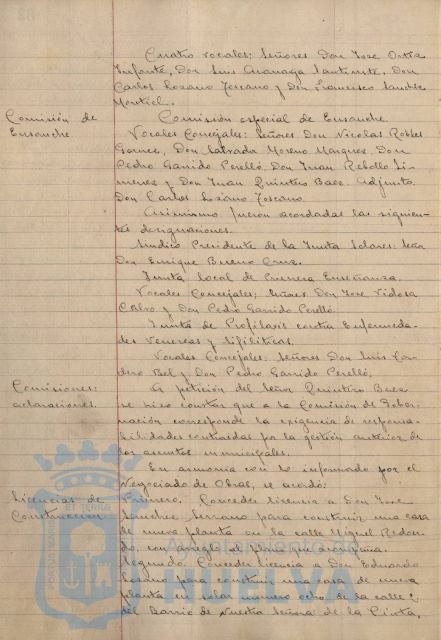 Cuatro vocales: Señores Don Jose Ortiz
Infante, Don Luis Santirste, Don
Carlos Lozano Toscano y Don Francisco Sanchez
Montiel.
Comisión de
Ensanche
Comisión especial de Ensanche.
Vocales Concejales: Señores Don Nicolas Robles
Gomez, Don Salvador Moreno Marquez Don
Pedro Garrido Perelló, Don Juan Rebollo Ji-
menez y Don Juan Quintero Baez. Adjunto
Don Carlos Lozano Toscano.
Asimismo fueron acordadas las siguien-
tes designaciones.
Sindico Presidente de la Junta Solares: Señor
Don Enrique Bueno Cruz.
Junta local de Primera Enseñanza.
Vocales Concejales; Señores Don Jose Vidosa
Calvo y Don Pedro Garrido Perelló
Junta de Profilaxis contra Enfermeda-
des Venereas y Sifiliticas.
Vocales Concejales: Señores Don Luis Cor-
dero Bel y Don Pedro Garrido Perelló,
Comisiones:
aclaraciones.
A petición del Señor Quintero Baez
se hizo constar que a la Comisión de Gober-
nación corresponde la exigencia de responsa-
bilidades contraidas por la gestión anterior de
los asuntos municipales.
En armonia con lo informado por el
Negociado de Obras, se acordó:
Licencias de
Construccion
Primero. Conceder licencia a Don Jose
Sanchez Serrano para construir una casa
de nueva planta en la calle Miguel Redon-
do, con arreglo al plano que acompaña.
Segundo. Conceder licencia a Don Eduardo
Lozano para construir una casa de nueva
planta en solar número ocho de la calle
del Barrio de Nuestra Señora de la Cinta,
Ayuntamiento de
HUELVA
PORTUS MARIS
ET TERRAE